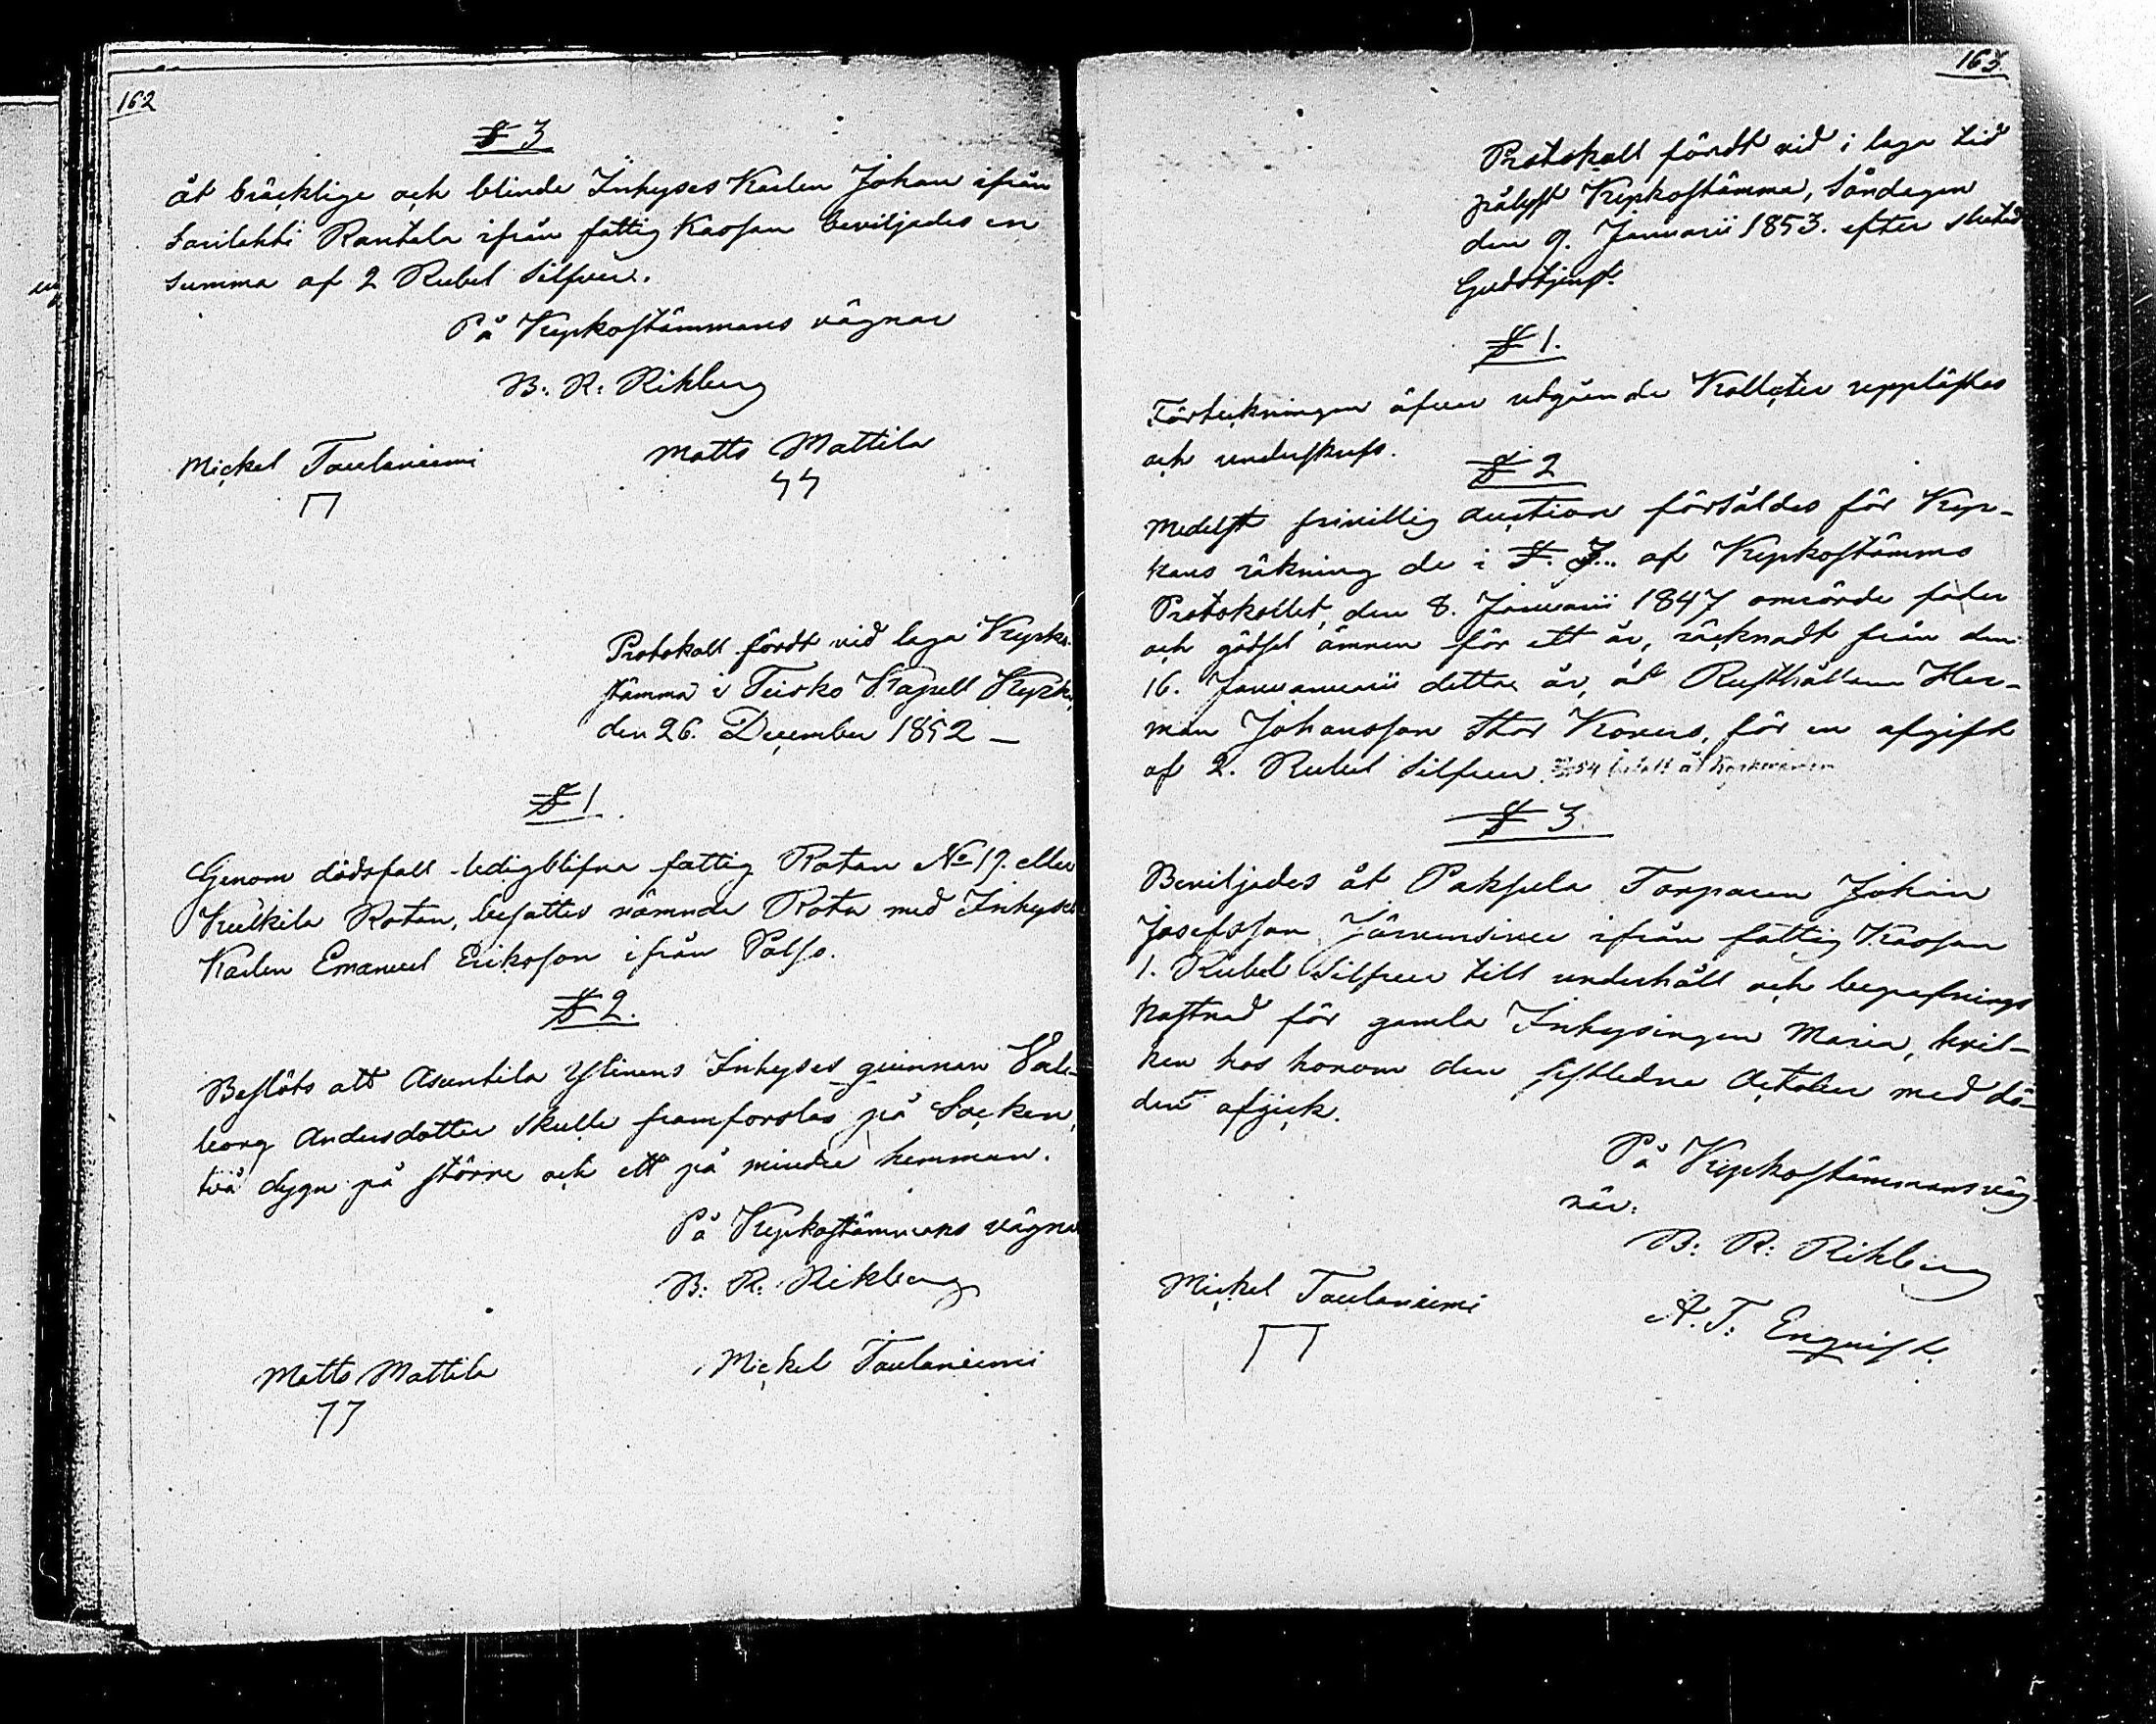 162
§ 3
åt bräcklige och blinde Inhyses Karlen Johan ifrån
Savilahti Rantala ifrån fattig Kassan beviljades en
summa af 2 Rubel Silfver.
På Kyrkostämmans vägnar
B: R: Rihlberg
Mickel Taulaniemi
Matts Mattila
Protokoll fördt vid laga Kyrko-
stämma i Teisko Kapell Kyrka,
den 26. December 1852 —
§ 1.
Genom dödsfall ledigblifne fattig Rotan No 17. eller
Kulkila Rotan, besattes nämnde Rota med Inhyses
Karlen Emanuel Eriksson ifrån Påhso.
§ 2.
Beslöts att Asuntila Ylinens Inhyses qvinnan Val-
borg Andersdotter skulle framforslas på Socken,
två dygn på större och ett på mindre hemman.
På Kyrkostämmans vägnar
B: R: Rihlberg
Matts Mattila
Mickel Taulaniemi
163.
Protokoll fördt vid i laga tid
pålyst Kyrkostämma, Söndagen
den 9. Januarii 1853. efter slutad
Gudstjenst.
§ 1.
Förteckningen öfver utgående Kollecter upplästes
och underskrefs.
§ 2
Medelst frivillig auction försåldes för Kyr-
kans räkning de i §. 3... af Kyrkostämmo
Protokollet, den 8. Januarii 1847 omrörde foder
och gödsel ämnen för ett år, räcknadt från den
16. Januanuarii detta år, åt Rusthållaren Her-
man Johansson Stor Kovers, för en afgift
af 2. Rubel Silfver.
§ 3.
Beviljades åt Paksula Torparen Johan
Josefsson Järvensivu ifrån fattig Kassan
1. Rubel Silfver till underhåll och begrafnings
kostnad för gamla Inhysingen Maria, hvil-
ken hos honom den sistledne October med dö-
den afgick.
På Kyrkostämmans väg-
nar:
B: R: Rihlberg
Mickel Taulaniemi
A. T: Enqvist.